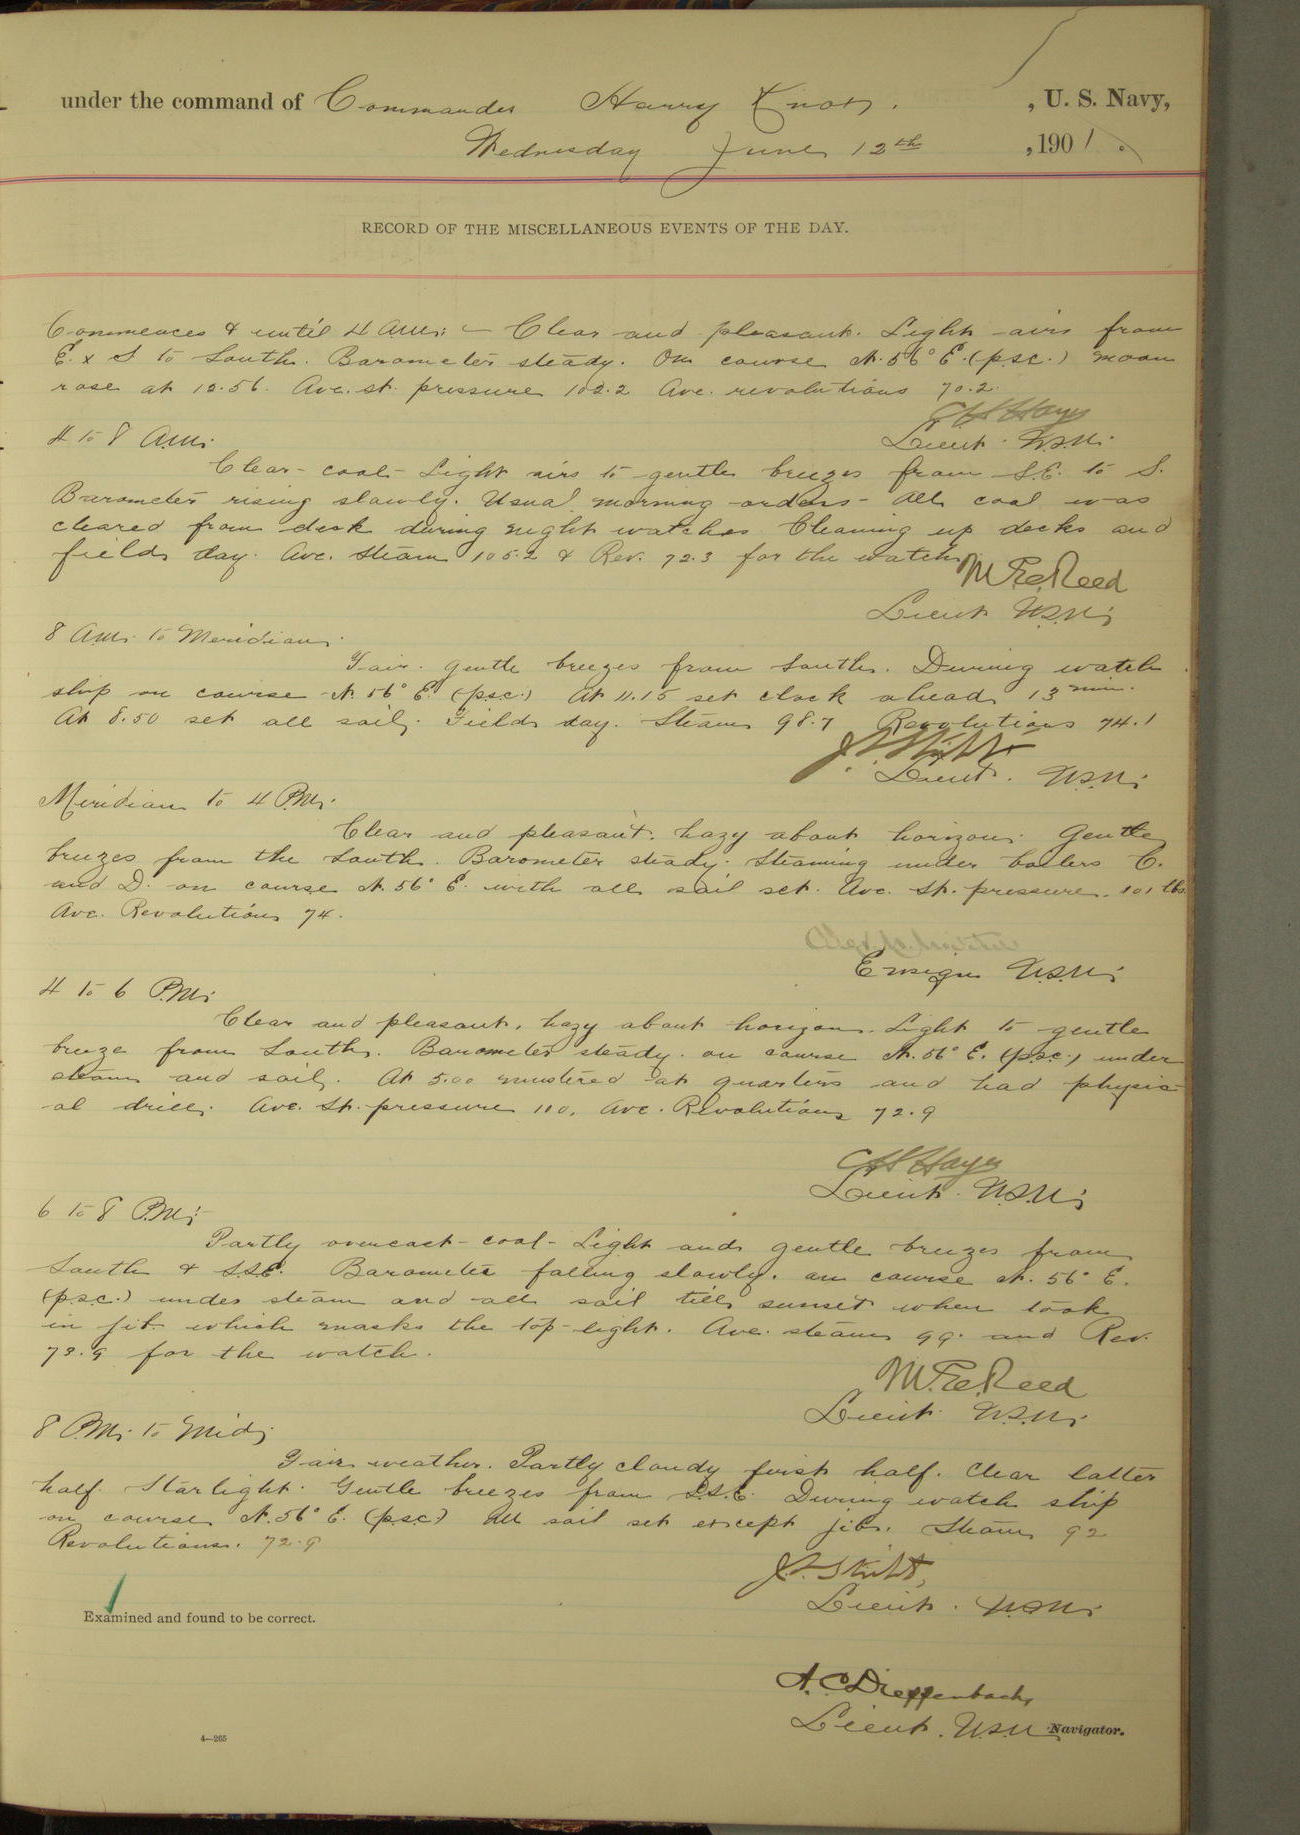 under the command of Commander Harry Knox. , U. S. Navy,
Wednesday June 12th , 1901.
RECORD OF THE MISCELLANEOUS EVENTS OF THE DAY.
Commences & until 4 A.M.:— Clear and pleasant. Light airs from
E. x S to South. Barometer steady. On course N. 56° E. (p.s.c.) moon
rose at 12.56. Ave. st. pressure 102.2 Ave. revolutions 70.2.
C.H. Hayes
Lieut. U.S.N.
4 to 8 A.M.
Clear - cool - Light airs to gentle breezes from S.E. to S.
Barometer rising slowly. Usual morning orders - All coal was
cleared from deck during night watches Cleaning up decks and
field day. Ave. Steam 105.2 & Rev. 72.3 for the watch.
M. E. Reed
Lieut U.S.N.
8 A.M. to Meridian.
Fair. gentle breezes from South. During watch
ship on course N. 56° E. (p.s.c.) At 11.15 set clock ahead 13 min.
At 8.50 set all sail. Field day. Steam 98.7 Revolutions 74.1
Lieut. U.S.N.
Meridian to 4 P.M.
Clear and pleasant. hazy about horizon. Gentle
breezes from the South. Barometer steady. Steaming under boilers C.
and D. on course N. 56° E. with all sail set. Ave. St. pressure. 101 lbs
Ave. Revolutions 74.
Ensign U.S.N.
4 to 6 P.M.
Clear and pleasant, hazy about horizon. Light to gentle
breeze from South. Barometer steady. on course N. 56° E. (p.s.c.) under
steam and sail. At 5.00 mustered at quarters and had physic-
al drill. Ave. St. pressure 110. Ave. Revolutions 72.9
C.H. Hayes
Lieut. U.S.N.
6 to 8 P.M.
Partly overcast - cool - Light and gentle breezes from
South & S.S.E. Barometer falling slowly. on course N. 56° E.
(p.s.c.) under steam and all sail till sunset when took
in jib which masks the top-light. Ave. steam 99. and Rev.
73.9 for the watch.
M. E. Reed
Lieut. U.S.N.
8 P.M. to Mid.
Fair weather. Partly cloudy first half. Clear latter
half. Starlight. Gentle breezes from S.S.E. During watch ship
on course N. 56° E. (p.s.c.) All sail set except jib. Steam 92
Revolutions. 72.9
Lieut. U.S.N.
Examined and found to be correct.
A. C. Dieffenbach,
Lieut. U.S.N. Navigator.
4—265